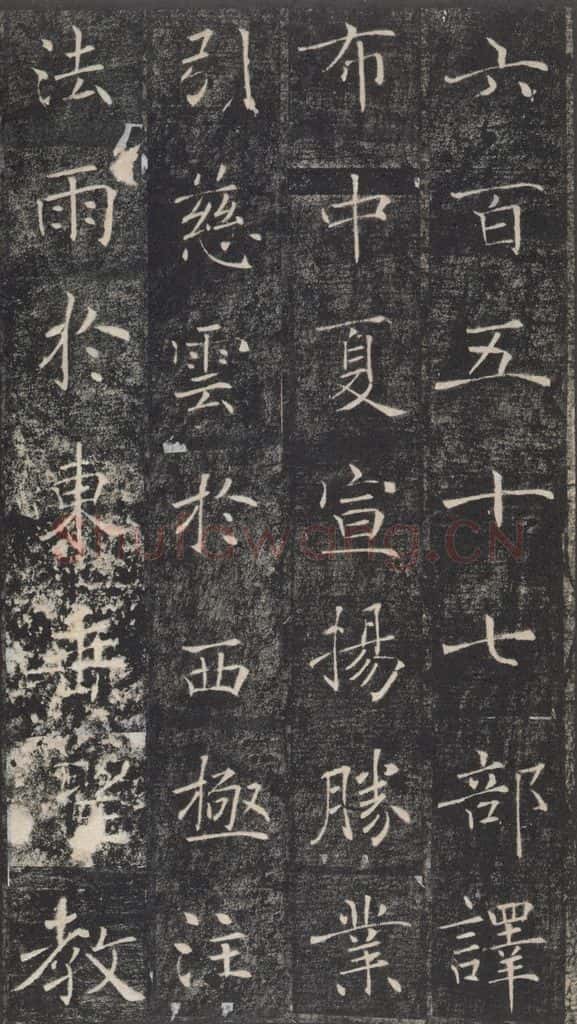 六百五十七部譯
布中夏宣揚勝業
引慈雲於西極注
法雨於東垂教
shufawang.CN